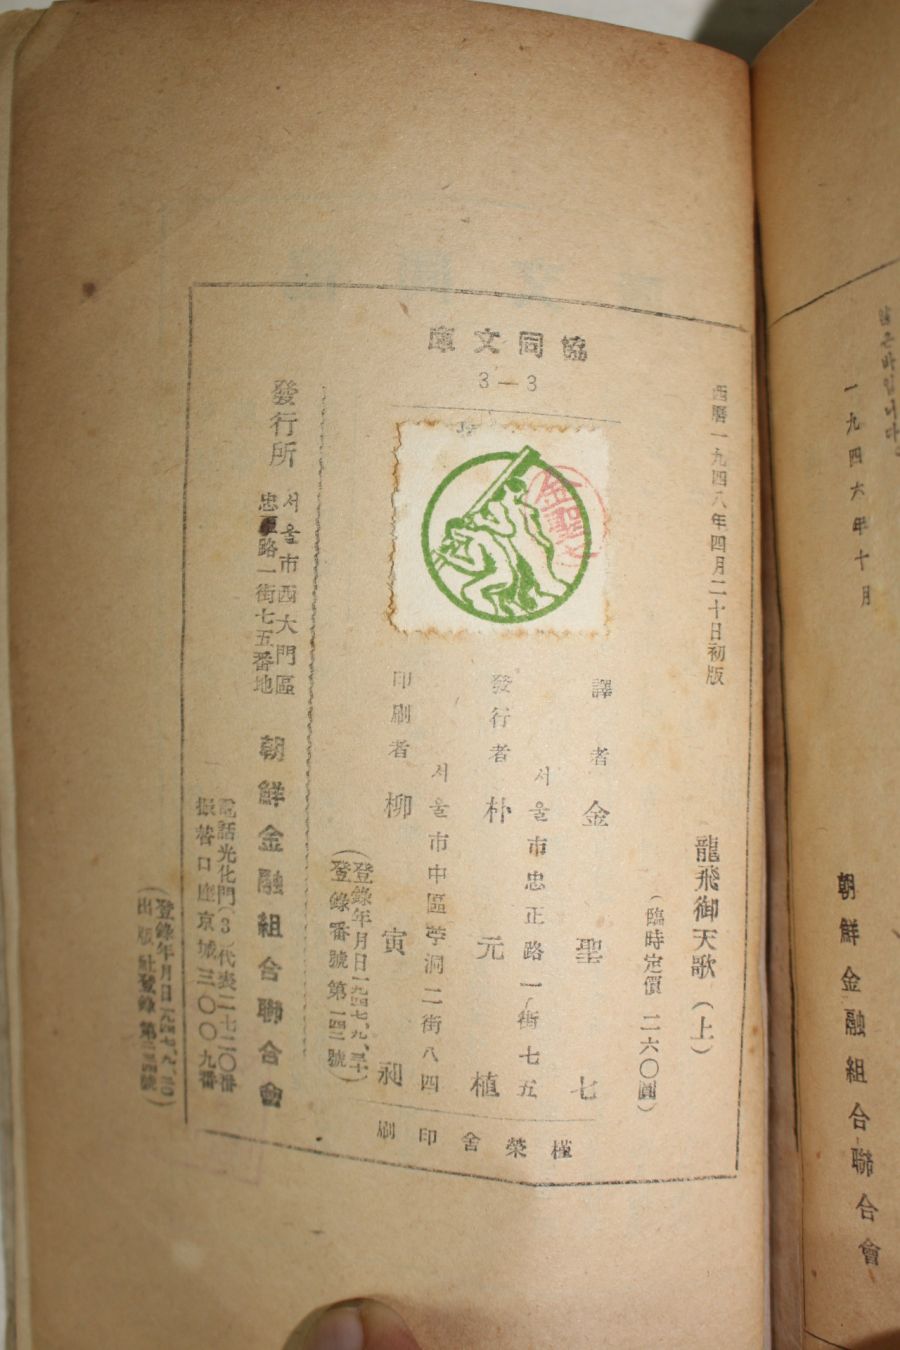 協同文庫
3—3
西曆一九四八年四月二十日初版
龍飛御天歌(上)
(臨時定價 二六〇圓)
譯者 金聖七
서울市忠正路一街七五
發行者 朴元植
서울市中區苧洞二街八四
印刷者 柳寅昶
(登錄年月日一九四七、九、三十
登錄番號第一四一號)
槿榮舍印刷
發行所
서울市西大門區
忠正路一街七五番地
朝鮮金融組合聯合會
電話光化門(3)代表二七二〇番
振替口座京城三〇〇九番
(登錄年月日一九四七、九、三〇
出版社登錄第三四號)
一九四六年十月
朝鮮金融組合聯合會